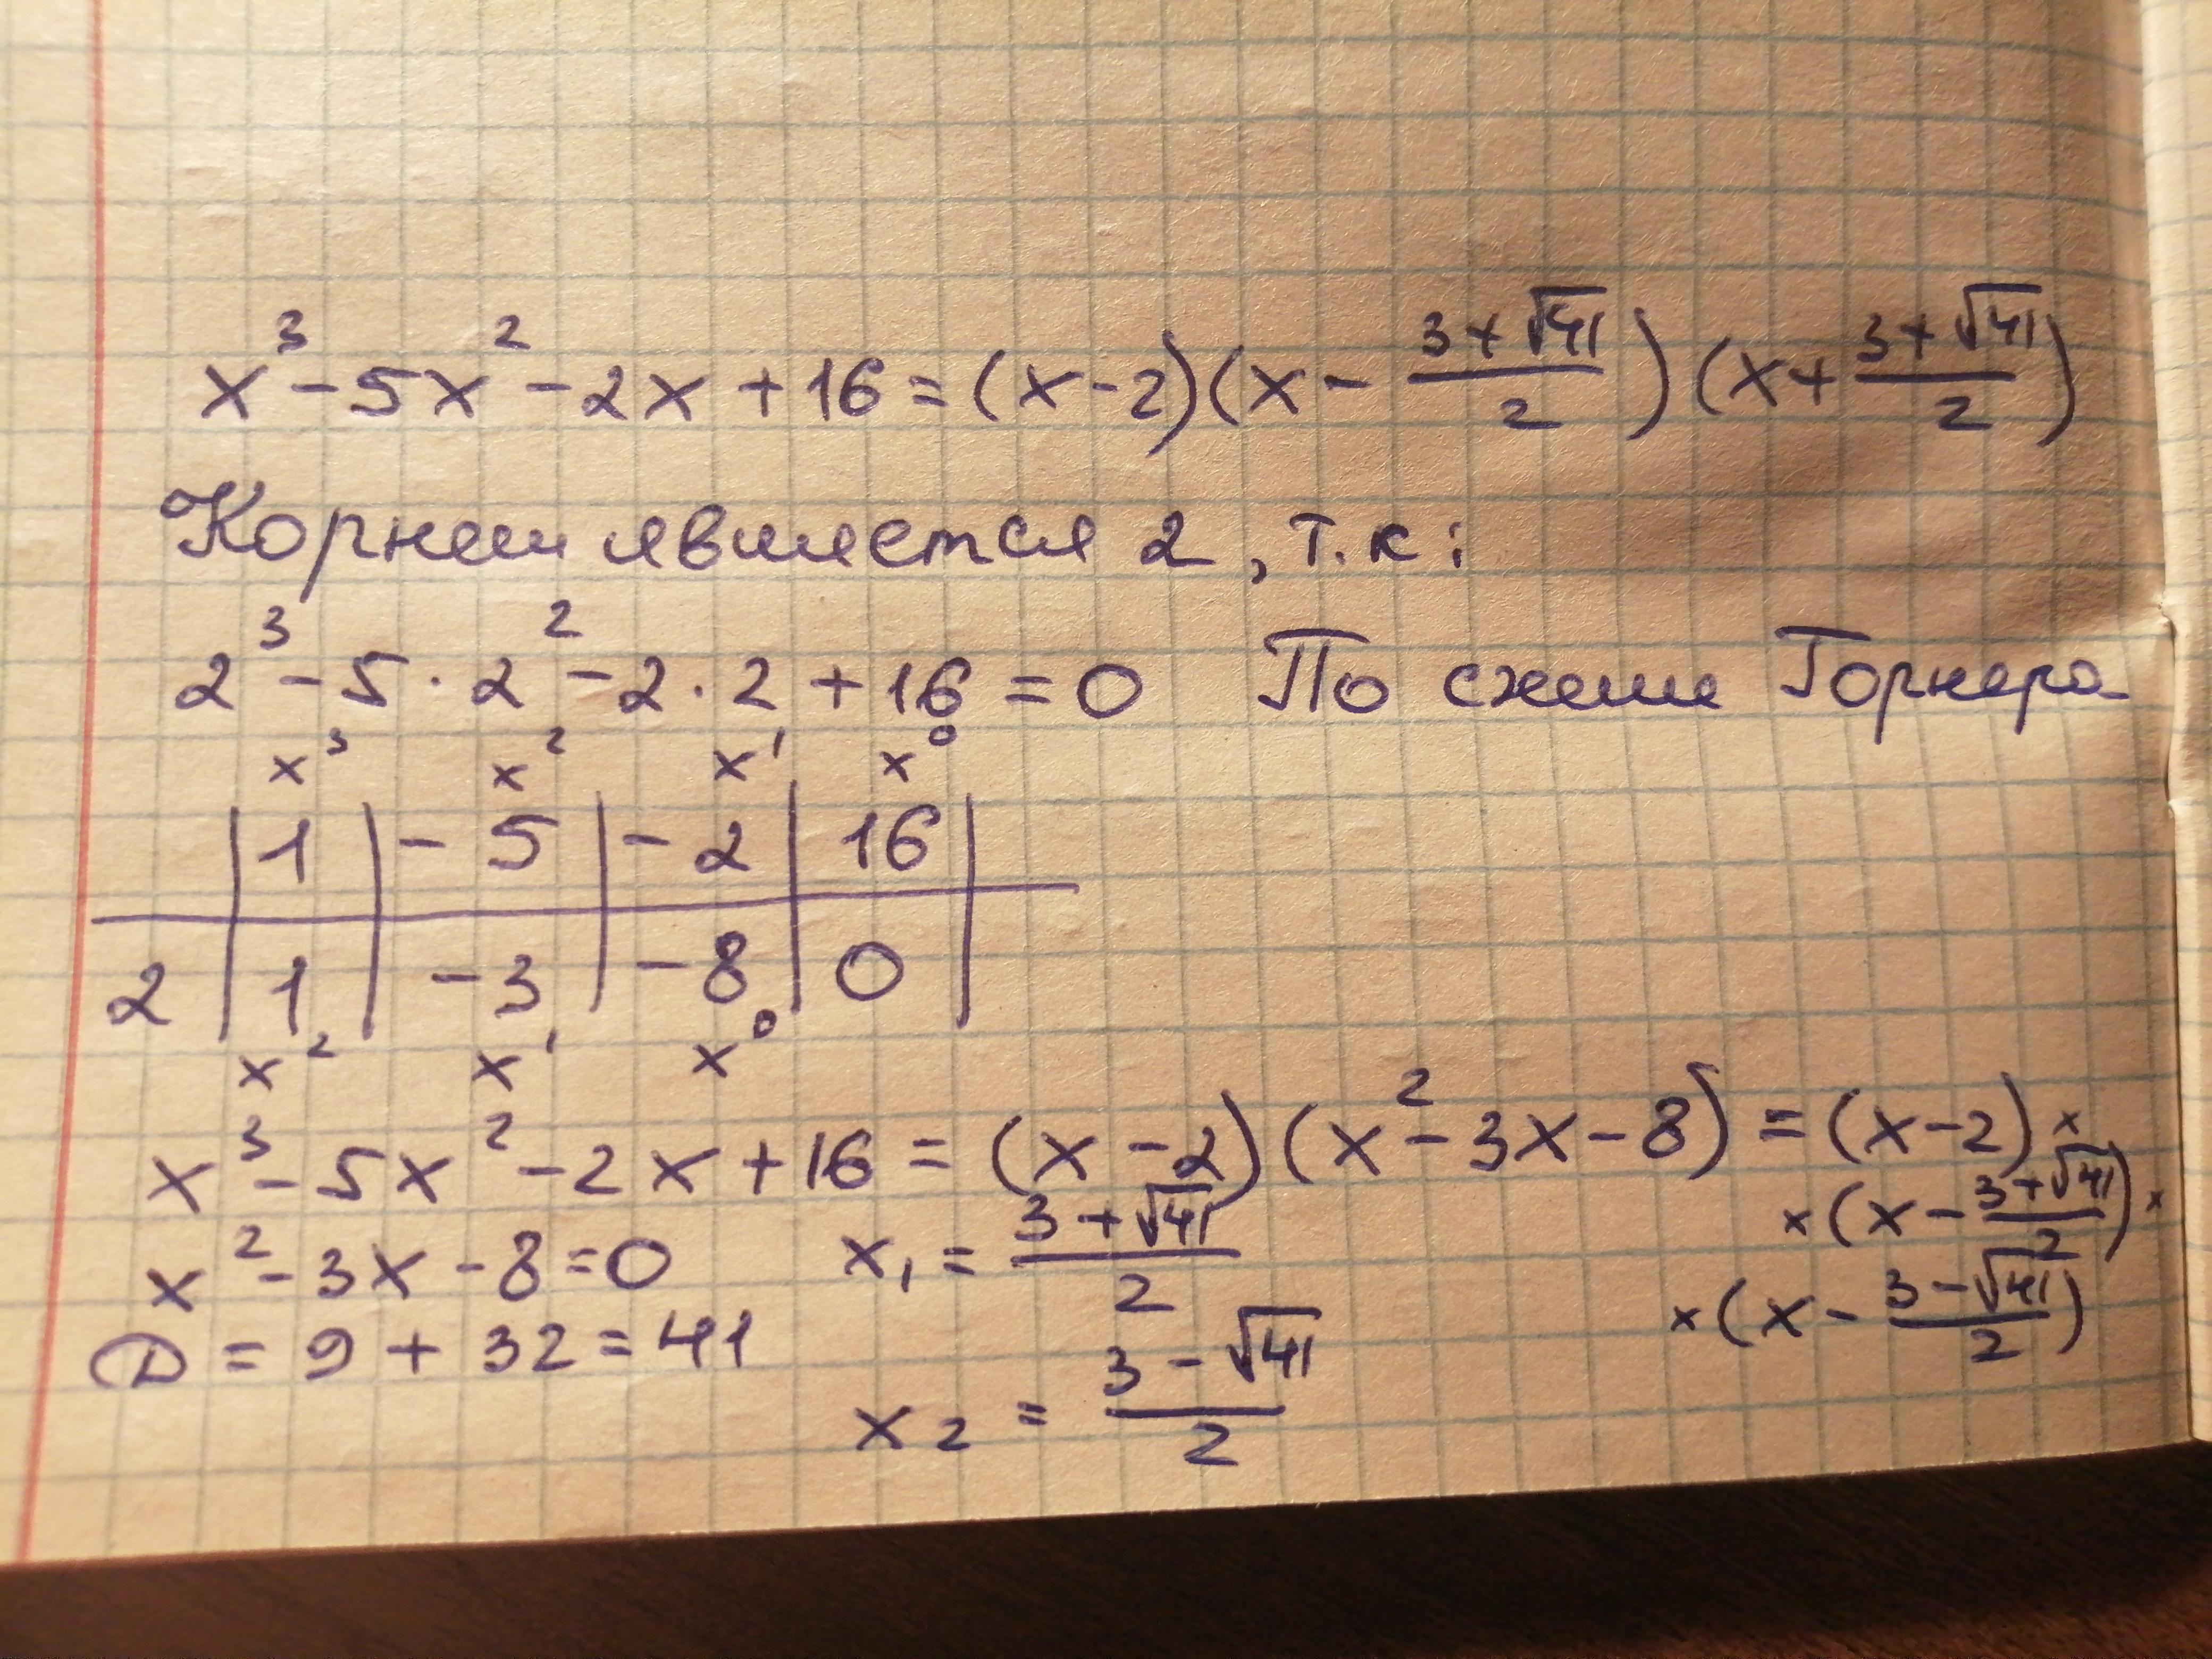 x³ - 5x² - 2x + 16 = (x - 2)(x - (3 + √41)/2)(x + (3 + √41)/2)
Корнем является 2, т.к:
2³ - 5 · 2² - 2 · 2 + 16 = 0 По схеме Горнера
x³ x² x¹ x⁰
| 1 | -5 | -2 | 16 |
2 | 1 | -3 | -8 | 0 |
x² x¹ x⁰
x³ - 5x² - 2x + 16 = (x - 2)(x² - 3x - 8) = (x - 2) ×
× (x - (3 + √41)/2) ×
× (x - (3 - √41)/2)
x² - 3x - 8 = 0 x₁ = (3 + √41)/2
D = 9 + 32 = 41
x₂ = (3 - √41)/2